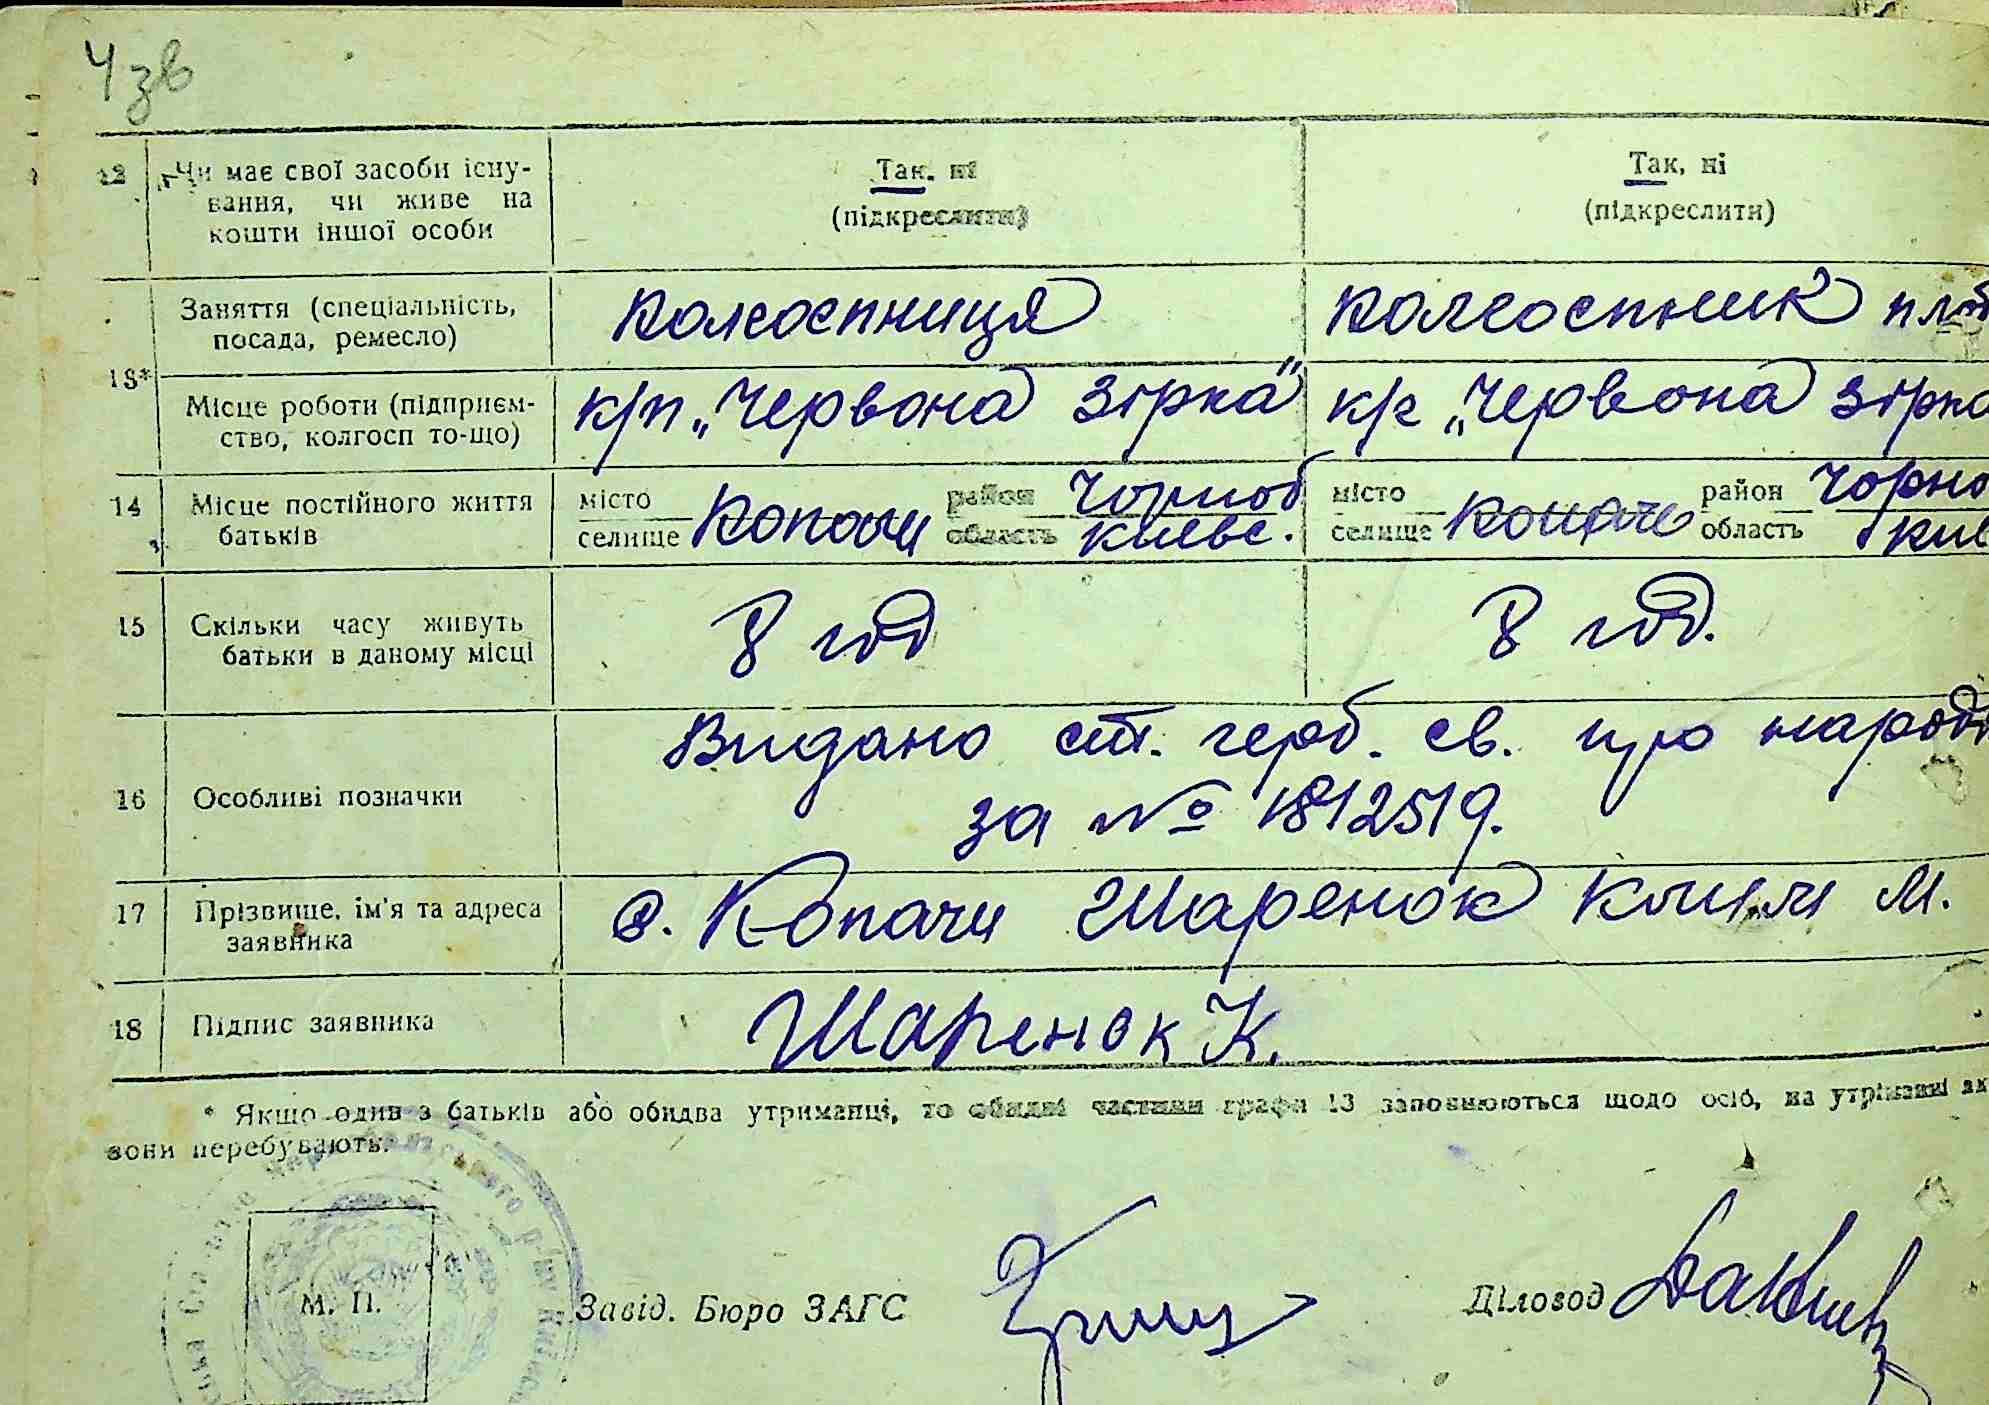 4 зв
12 Чи має свої засоби існу-
вання, чи живе на
кошти іншої особи
Так, ні
(підкреслити)
Так, ні
(підкреслити)
13*
Заняття (спеціальність,
посада, ремесло)
Колгоспниця
колгоспник
Місце роботи (підприєм-
ство, колгосп то-що)
к/п „Червона Зірка"
к/г „Червона Зірка
14 Місце постійного життя
батьків
місто
селище Копачи район Чорноб
область Київс.
місто
селище Копачи район Чорно
область Киє
15 Скільки часу живуть
батьки в даному місці
8 год
8 год.
16 Особливі позначки
Видано ст. герб. св. про народ
за № 1812519.
17 Прізвище, ім'я та адреса
заявника
с. Копачи Шаренок Клим М.
18 Підпис заявника
Шаренок К.
* Якщо один з батьків або обидва утриманці, то обидві частини графи 13 заповнюються щодо осіб, на утриманні як
вони перебувають.
М. П.
Завід. Бюро ЗАГС
Діловод